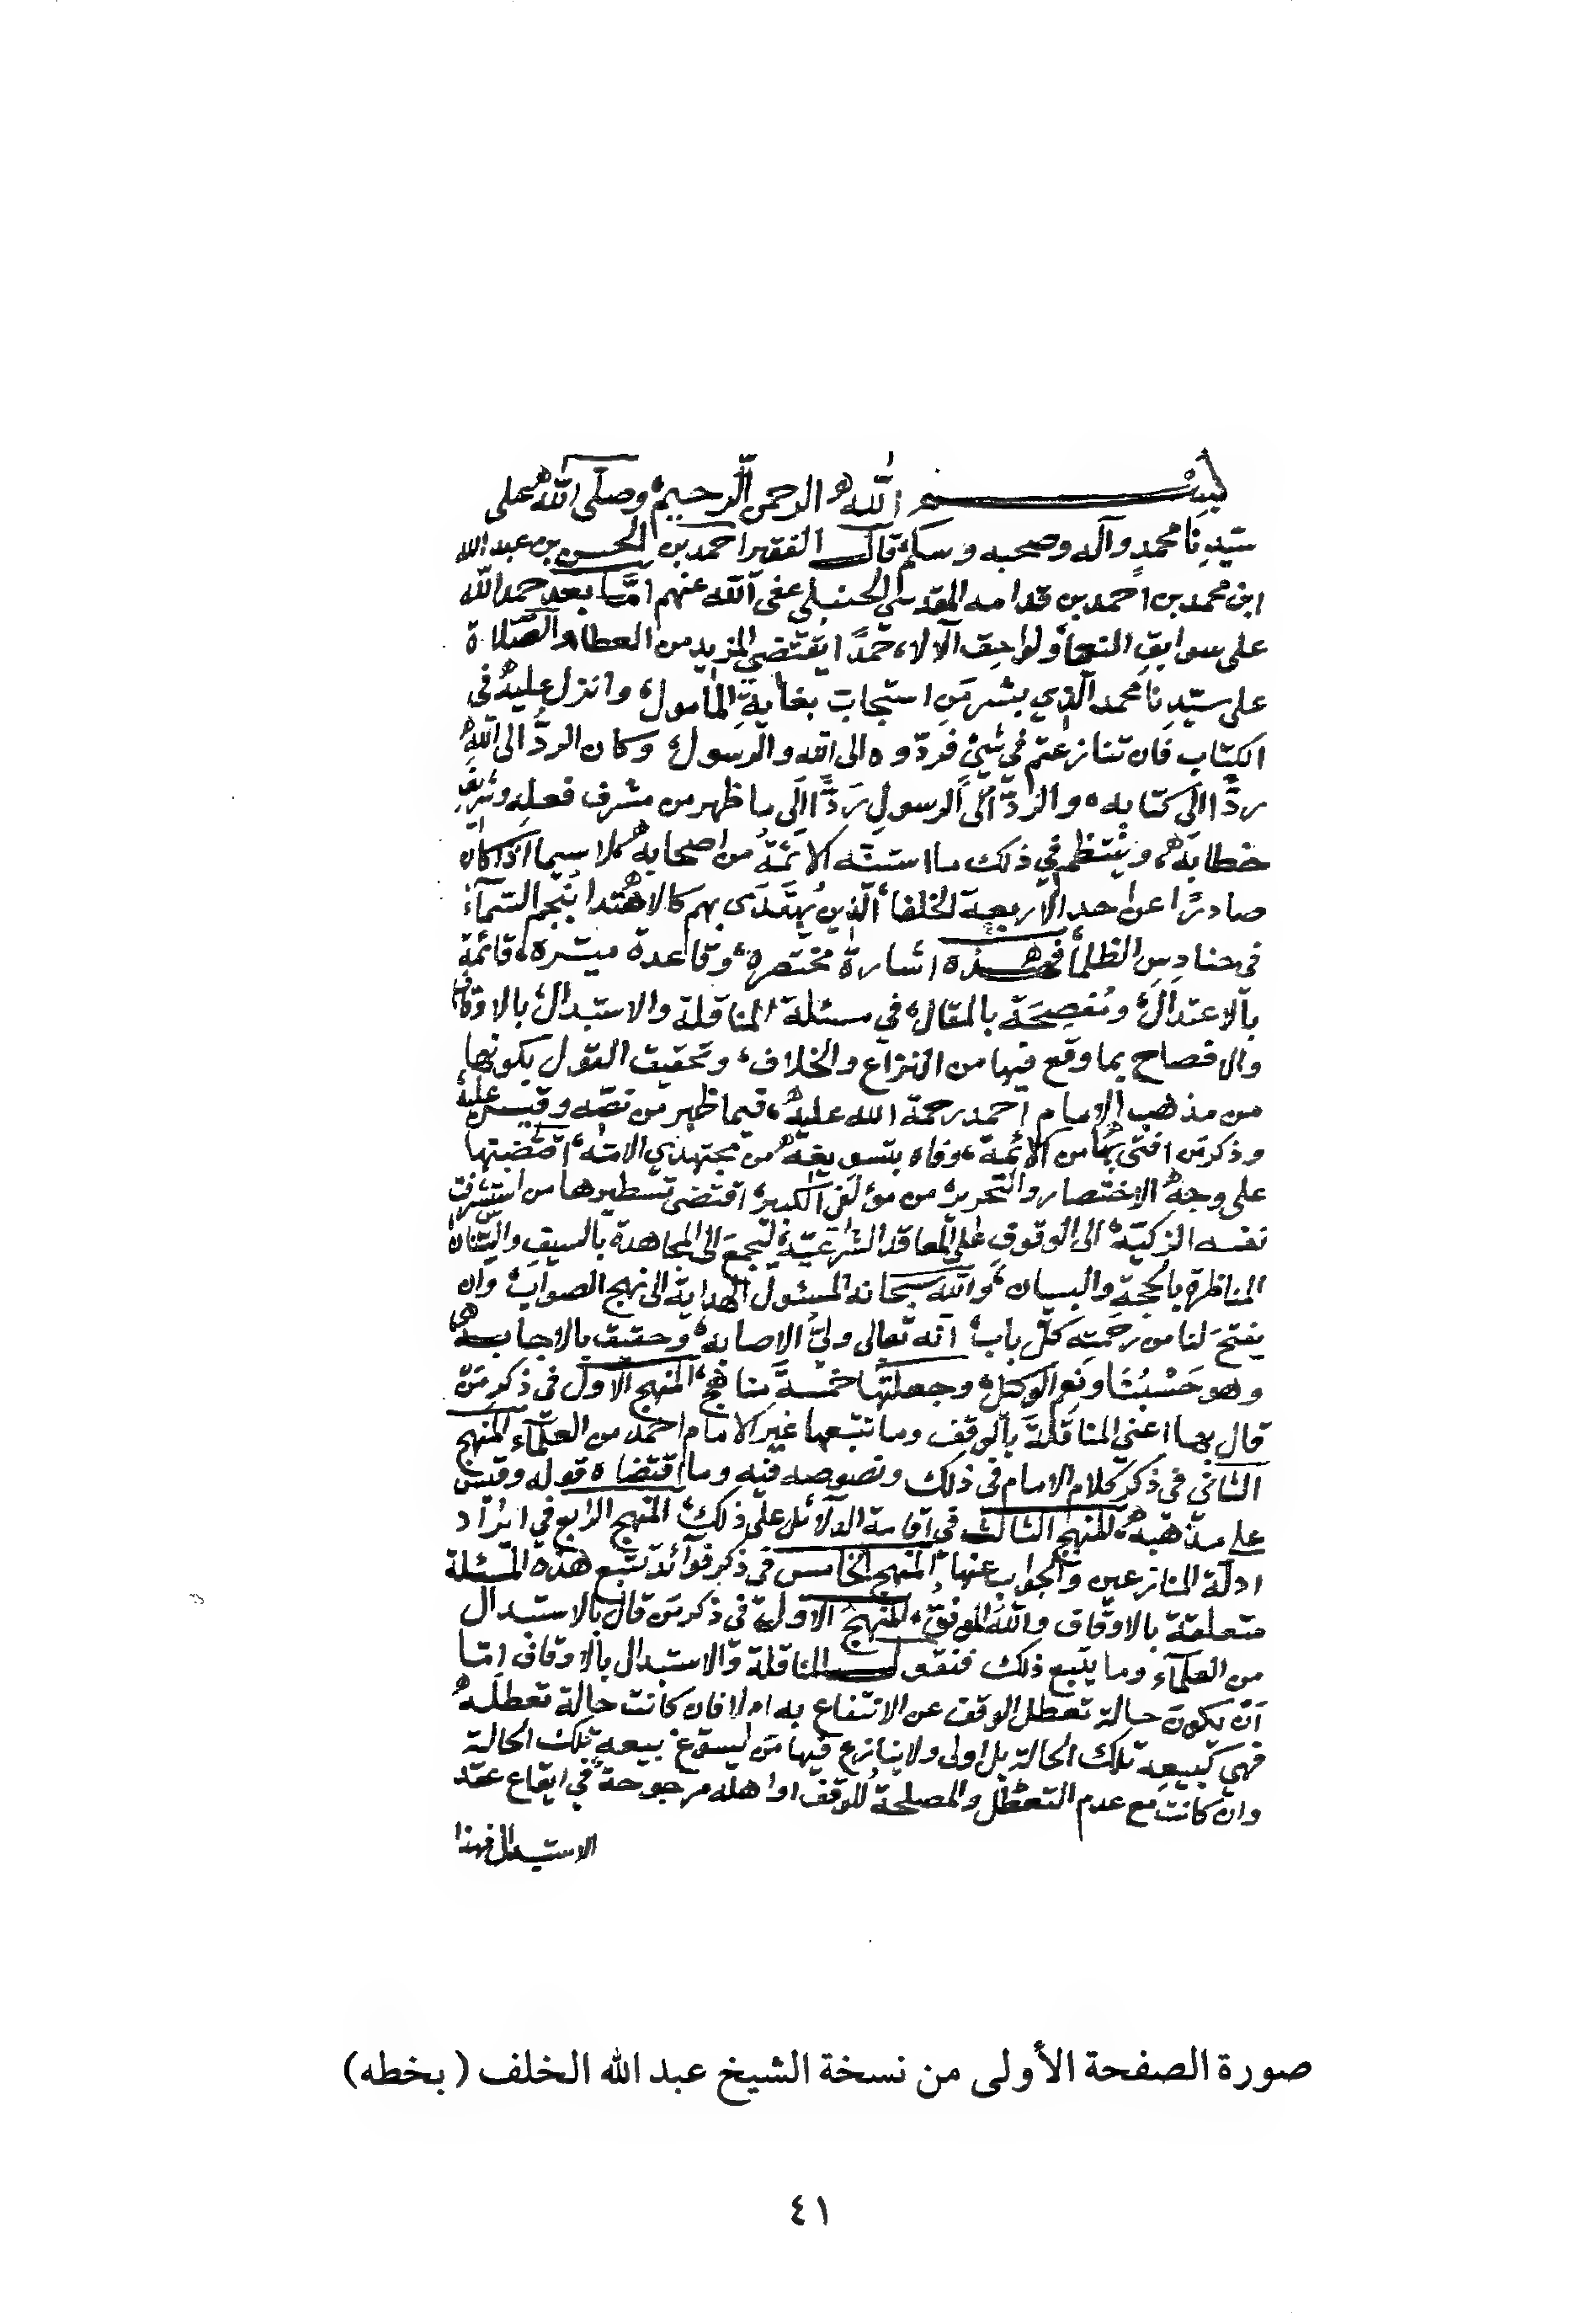 بسم الله الرحمن الرحيم، وصلى الله على
سيدنا محمد وآله وصحبه وسلم، قال الفقير احمد بن الحسن بن عبد الله
ابن محمد بن احمد بن قدامه المقدسي الحنبلي عفى الله عنهم اما بعد حمد الله
على سوابق النعما ولواحق الآلا، حمدًا يقتضي المزيد من العطا، والصلاة
على سيدنا محمد الذي بشر من استجاب بغاية المأمول، وانزل عليه في
الكتاب فان تنازعتم في شيئ فردوه الى الله والرسول، وكان الرد الى الله
ردًّا الى كتابه، والرد الى الرسول ردًّا الى ما ظهر من شرف فعله وشريف
خطابه، وينتظم في ذلك ما استنه الائمة من اصحابه، لا سيما اذا كان
صادرًا عن احد الاربعة الخلفا، الذين يهتدى بهم كالاهتدا بنجم السمآء
في حنادس الظلما، فهذه اشارة مختصرة، وقاعدة ميسرة، قائمة
بالاعتدال، ومفصحة بالمقال، في مسئلة المناقلة والاستبدال، بالاوقاف
والافصاح بما وقع فيها من النزاع والخلاف، وتحقيق القول بكونها
من مذهب الامام احمد رحمة الله عليه، فيما ظهر من نصه وقيس عليه
وذكر من افتى بها من الائمة، وفاه بتسويغه من مجتهدي الامة، اقتضبتها
على وجه الاختصار والتحرير، من مؤلفي الكبير، اقتضى تسطيرها من استشرفت
نفسه الزكية، الى الوقوف على المعاقد الشرعية، ليجمع الى المجاهدة بالسيف والسنان
المناظرة بالحجة والبيان، والله سبحانه المسئول الهداية الى نهج الصواب، وان
يفتح لنا من رحمته كل باب، انه تعالى ولي الاصابه، وحقيق بالاجابه
وهو حسبنا ونعم الوكيل، وجعلتها خمسة مناهج، المنهج الاول في ذكر من
قال بها اعني المناقلة بالوقف وما تتبعها غير الامام احمد من العلمآء المنهج
الثاني في ذكر كلام الامام في ذلك ونصوصه فيه وما اقتضاه قوله وقيس
على مذهبه، المنهج الثالث في اقامة الدلائل على ذلك، المنهج الرابع في ايراد
ادلة المنازعين والجواب عنها، المنهج الخامس في ذكر فوآئد تتبع هذه المسئلة
متعلقة بالاوقاف والله الموفق، المنهج الاول، في ذكر من قال بالاستبدال
من العلمآء وما يتبع ذلك فنقول المناقلة والاستبدال بالاوقاف اما
أن يكون حالة تعطل الوقف عن الانتفاع به ام لا فان كانت حالة تعطله
فهي كبيعه تلك الحالة بل اولى ولا ينازع فيها من يسوغ بيعه تلك الحالة
وان كانت مع عدم التعطل والمصلحة للوقف او اهله مرجوحة في ايقاع عقد
الاستبدال فهذا
صورة الصفحة الأولى من نسخة الشيخ عبد الله الخلف (بخطه)
٤١